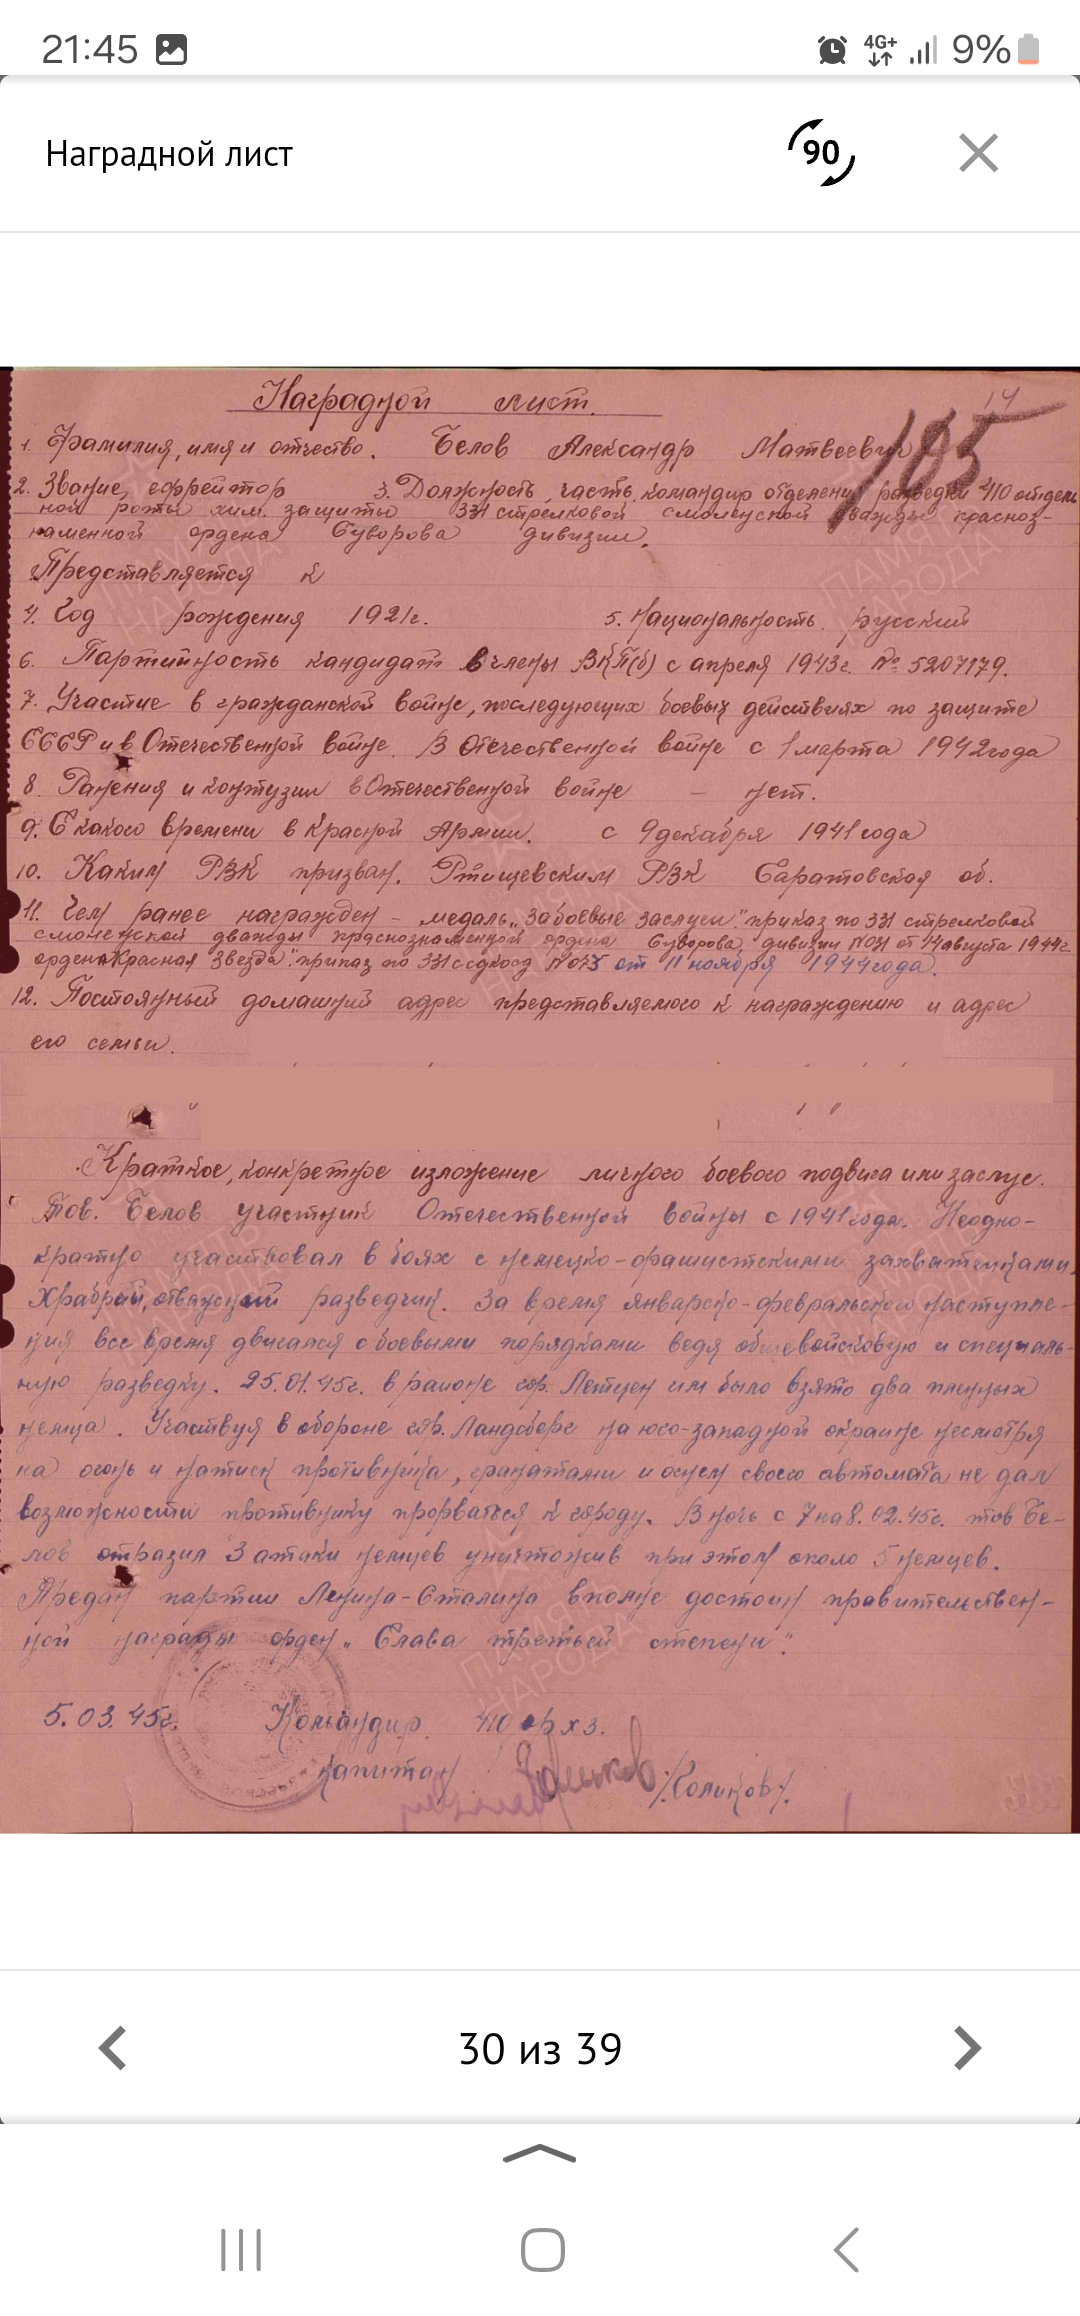 21:45 4G+ 9%
Наградной лист
90
14
Наградной лист.
185
1. Фамилия, имя и отчество. Белов Александр Матвеевич
2. Звание, ефрейтор 3. Должность, часть, командир отделения разведки 410 отдель
ной роты хим. защиты 331 стрелковой смоленской дважды красноз-
наменной ордена Суворова дивизии.
Представляется к
4. Год рождения 1921г. 5. Национальность русский
6. Партийность кандидат в члены ВКП(б) с апреля 1943г. № 5207179.
7. Участие в гражданской войне, последующих боевых действиях по защите
СССР и в Отечественной войне. В Отечественной войне с 1 марта 1942 года
8. Ранения и контузии в Отечественной войне - нет.
9. С какого времени в Красной Армии. с 9 декабря 1941 года
10. Каким РВК призван. Ртищевским РВК Саратовская об.
11. Чем ранее награжден - медаль "За боевые заслуги" приказ по 331 стрелковой
смоленской дважды краснознаменной ордена Суворова дивизии № 071 от 14 августа 1944г.
орден "Красная Звезда" приказ по 331 сдкосд № 075 от 11 ноября 1944 года.
12. Постоянный домашний адрес представляемого к награждению и адрес
его семьи.
Краткое, конкретное изложение личного боевого подвига или заслуг.
Тов. Белов участник Отечественной войны с 1941 года. Неодно-
кратно участвовал в боях с немецко-фашистскими захватчиками.
Храбрый, отважный разведчик. За время январско-февральского наступле-
ния все время двигался с боевыми порядками ведя общевойсковую и специаль-
ную разведку. 25.01.45г. в районе гор. Летцен им было взято два пленных
немца. Участвуя в обороне гор. Ландсберг на юго-западной окраине несмотря
на огонь и натиск противника, гранатами и огнем своего автомата не дал
возможности противнику прорваться к городу. В ночь с 7 на 8.02.45г. тов Бе-
лов отразил 3 атаки немцев уничтожив при этом около 5 немцев.
Предан партии Ленина-Сталина вполне достоин правительствен-
ной награды орден "Слава третьей степени".
5.03.45г. Командир 410 орхз.
капитан /Голиков/.
30 из 39